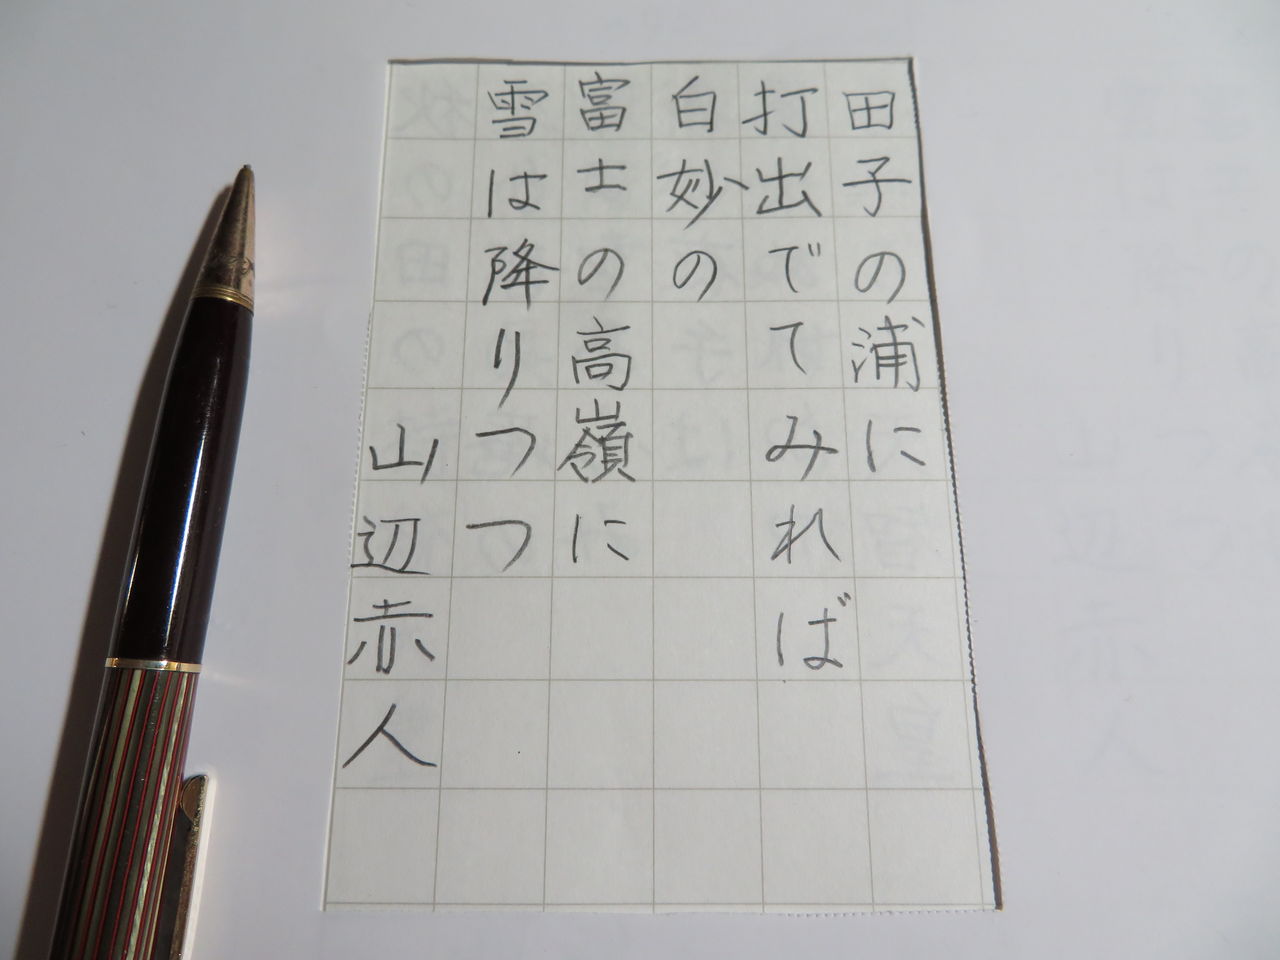 田子の浦に
打出でてみれば
白妙の
富士の高嶺に
雪は降りつつ
山辺赤人